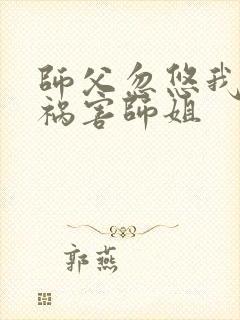 師父忽悠我
祸害師姐
郭燕